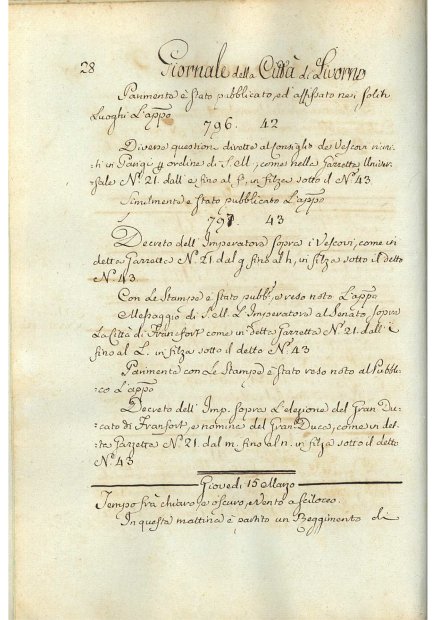 28 Giornale della Città di Livorno
Parimente è stato pubblicato, ed affissato nei soliti
Luoghi L'appo
796. 42
Diverse questioni dirette al Consiglio de Vescovi riuni-
ti in Parigi ordine di S. M., come nella Gazzetta Univer-
sale N.º 21. dall' e fino al f. in filza sotto il N.º 43.
Similmente è stato pubblicato L'appo
797 43
Decreto dell' Imperatore sopra i Vescovi, come in
detta Gazzetta N.º 21. dal g fino al h, in filza sotto il detto
N.º 43.
Con Le Stampe è stato pubb.º, e reso noto L'appo
Messaggio di S. M. L'Imperatore al Senato sopra
La Città di Francfort come in detta Gazzetta N.º 21. dall' i
fino al L. in filza sotto il detto N.º 43
Parimente con Le Stampe è stato reso noto al Pubbli-
co L'appo
Decreto dell' Imp. sopra L'elezione del Gran Du-
cato di Franfort, e nomine del Gran Duca, come in det-
ta Gazzetta N.º 21. dal m. fino al n. in filza sotto il detto
N.º 43
Giovedì 15 Marzo
Tempo frà chiaro, e oscuro, e vento a Scilocco.
In questa mattina è partito un Reggimento di